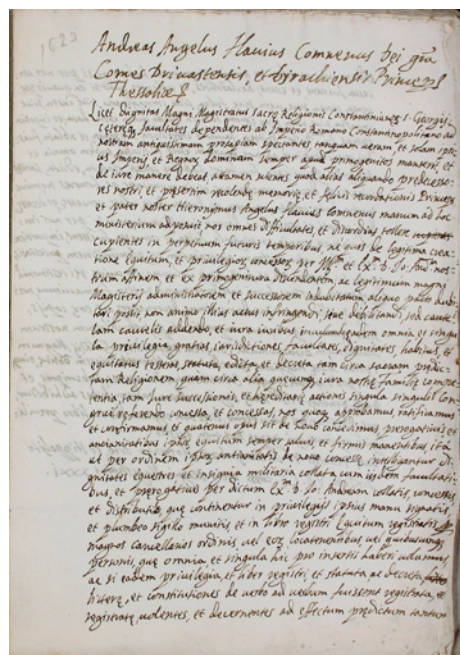 1623
Andreas Angelus Flavius Comnenus Dei grã
Comes Drivastensis, et Dirachiensis Princeps
Thessaliæ &
Licet Dignitas Magni Magistratus sacræ Religionis Constantinianæ S. Georgij
ceteræq; facultates dependentes ab Imperio Romano Constantinopolitano ad
nostram antiquissimam prosapiam spectantes tanquam veram, et solam ipsi-
us Imperij, et Regnor. dominam semper apud primogenitos manserit, et
de iure manere debeat, attamen videntes quod alias aliquando predecesso-
res nostri, et presertim recolende memorie, et felicis recordationis Princeps
et pater noster Hieronymus Angelus Flavius Comnenus manum ad hoc
ministerium nos omnes difficultates, et discordias tollere
cupientes in perpetuum futuris temporibus, ne quis de legitima crea-
tione equitum, et privilegior. concessor. per et D. Jo: And. nos-
trum affinem et ex primogenitura ac legitimum magni
Magisterij administratorem et successorem indubitatum aliquo pacto dubi-
tari possit non animo illius actus infringendi, sive debilitandi, sed caute-
lam cautelis addendo, et iura iuribus omnia et singu-
la privilegia, gratias, iurisdictiones facultates, dignitates, habitus, et
equitatus testras, statuta, edita, et decreta tam circa sacram predic-
tam Religionem, quam circa alia quecunq; iura nostræ familiæ compe-
tentia, tam iure successionis, et hereditarie actionis singula singulis con-
grue referendo concessa, et concessas, nos quoq; approbamus, ratificamus
et confirmamus, et quatenus opus sit de novo concedimus prerogativis et
ancianitatibus ipsor. equitum semper salvis, et firmis manentibus, ita
ut per ordinem ipsor. antianitatis de novo concesse intelligantur di-
gnitates equestres et insignia militaria collata cum iisdem facultati-
bus, et prerogativis per dictum D. Jo: Andream collatis, concessis,
et distributis, que continentur in privilegijs ipsius manu signatis,
et plumbeo sigillo munitis, et in libro registri Equitum registratis p
magnos cancellarios ordinis, vel eor. locatenentibus, vel quibusvis
personis, que omnia, et singula hic pro insertis haberi volumus,
ac si eadem privilegia, et liber registri, et statuta, ac decreta
litteræ, et constitutiones de verbo ad verbum fuissent registrata, et
registratæ, volentes, et decernentes ad effectum predictum tantum